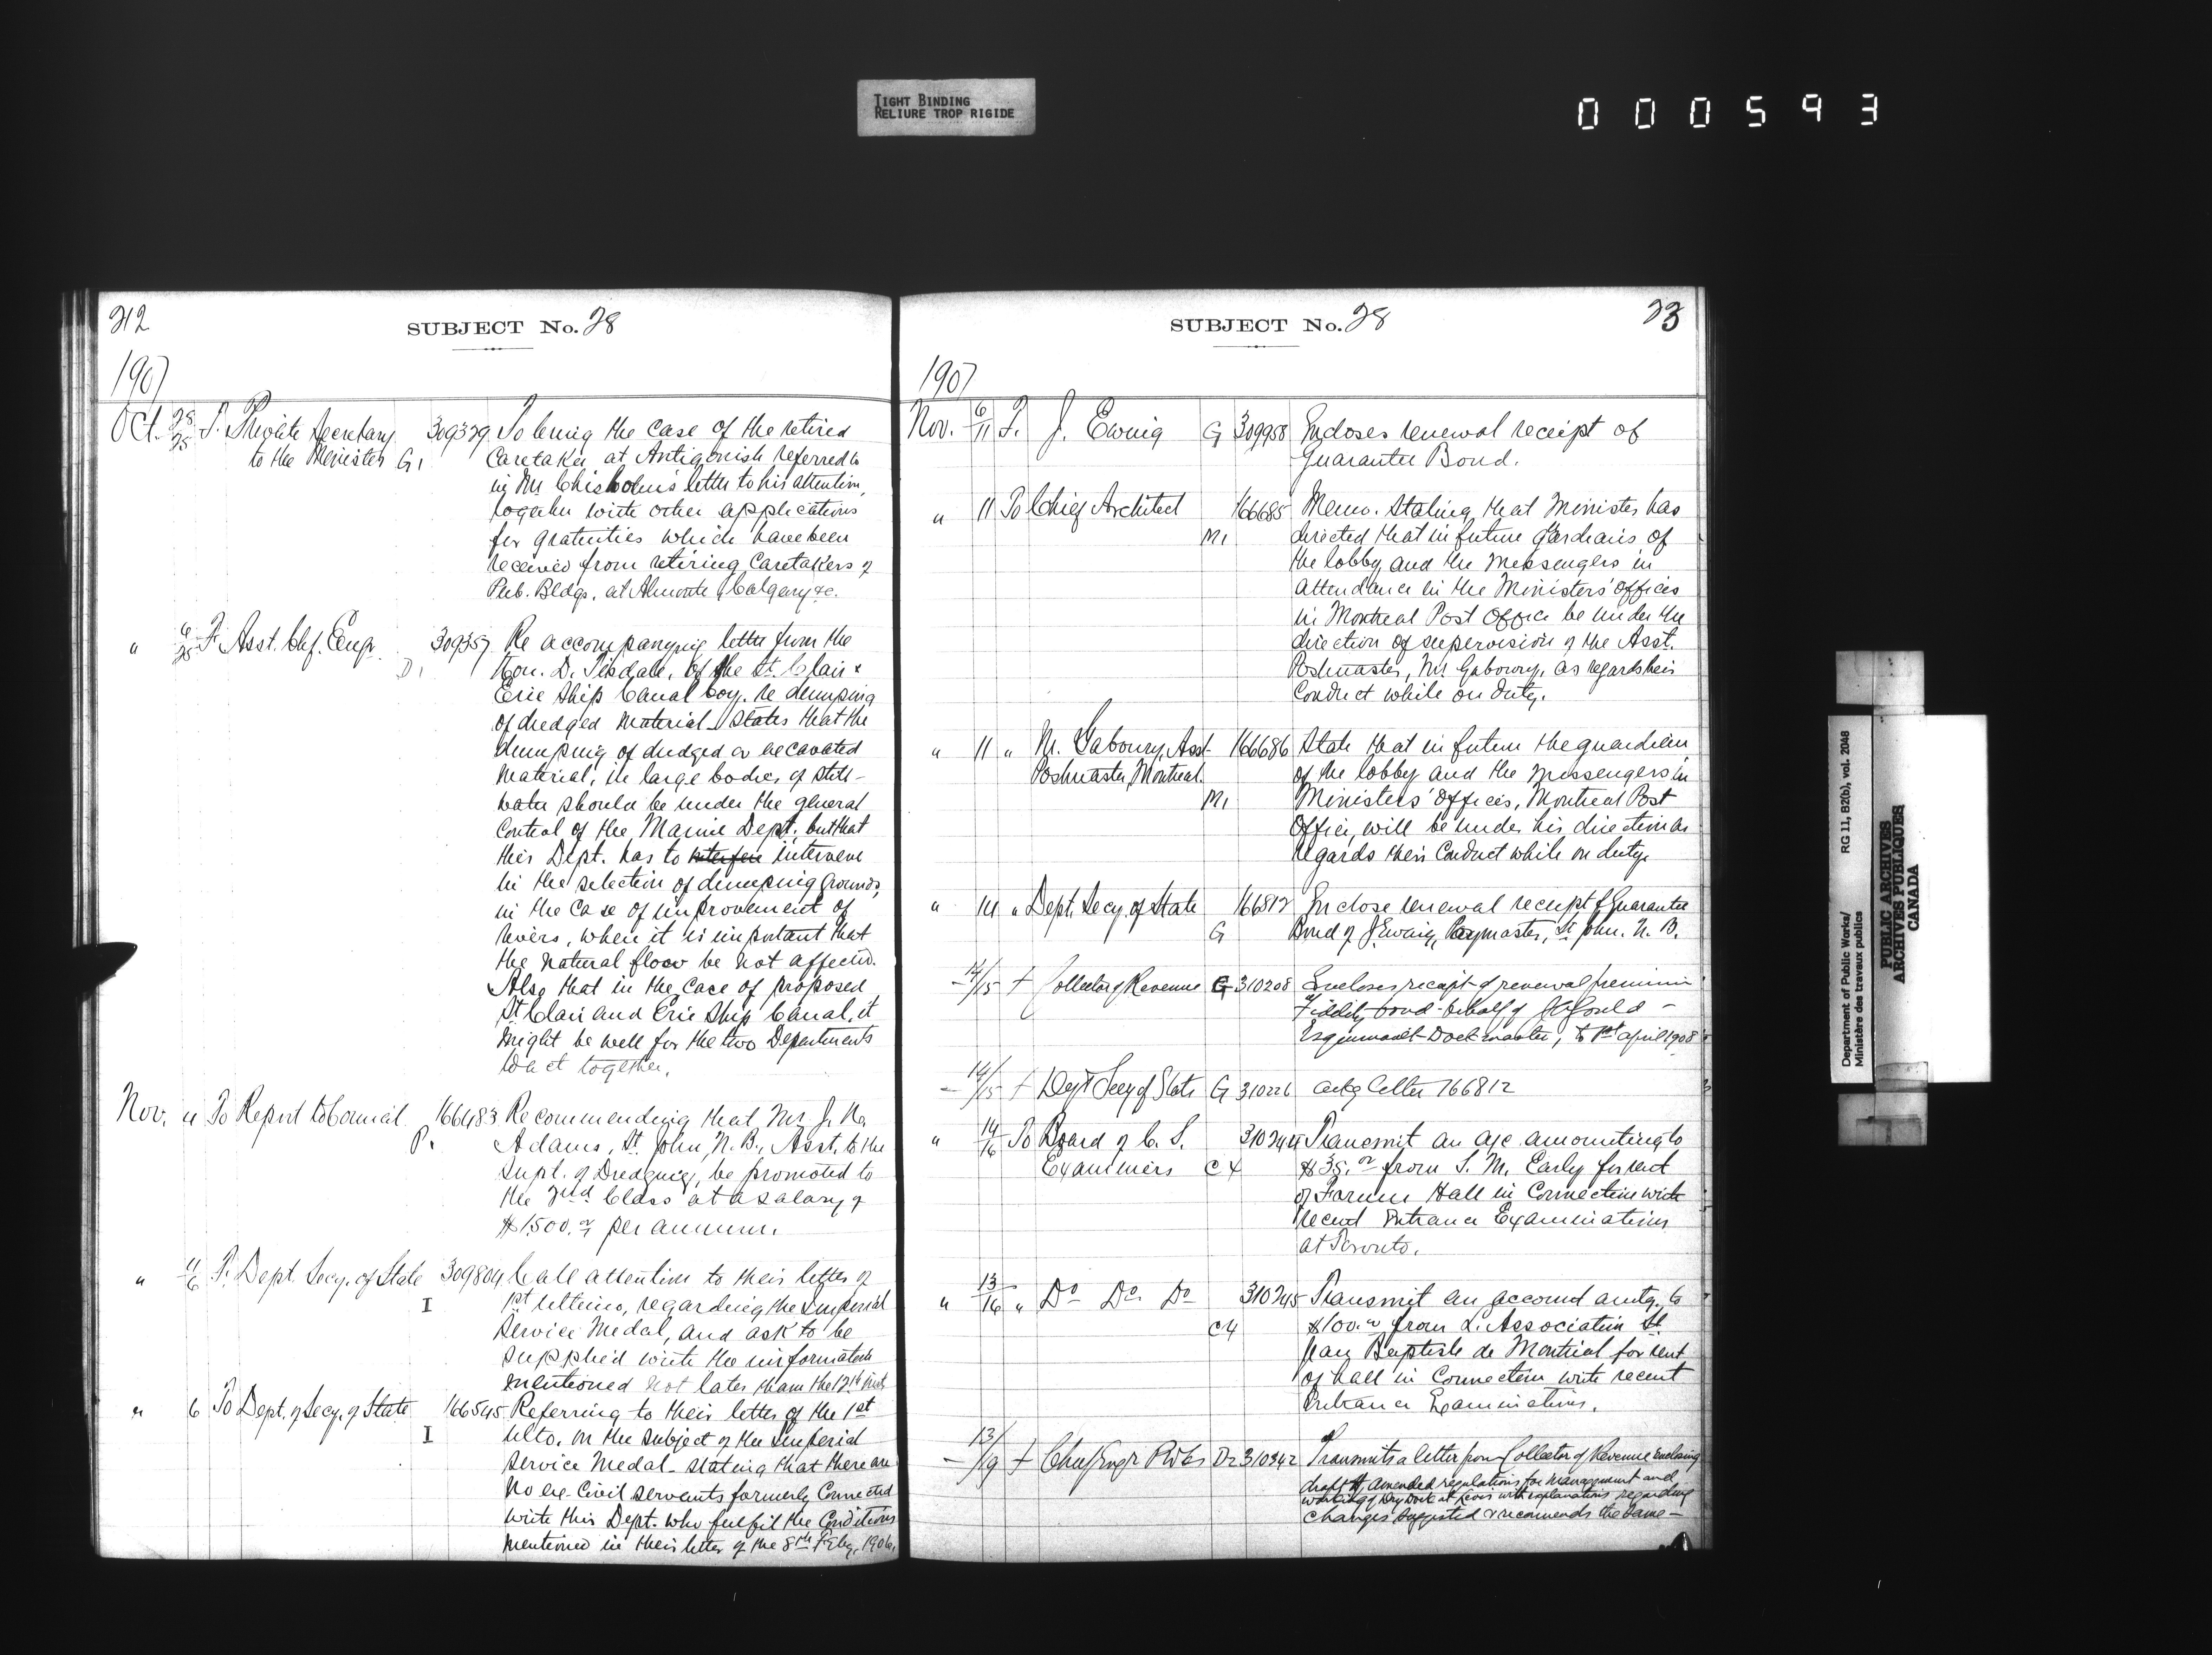 TIGHT BINDING
RELIURE TROP RIGIDE
000593
212
SUBJECT No. 28
1907
Oct. 28/25 F. Private Secretary 309379 To bring the case of the retired
to the Minister G1 Caretaker at Antigonish referred to
in Mr Chisholm's letter to his attention,
together with other applications
for gratuities which have been
received from retiring Caretakers of
Pub. Bldgs. at Almonte, Calgary &c.
" 6/25 F. Asst. Chf. Engr. 309357 Re accompanying letter from the
D1 Hon. D. Tisdale, of the St. Clair &
Erie Ship Canal Coy. re dumping
of dredged material_ States that the
dumping of dredged or excavated
material, in large bodies of still-
water should be under the general
Control of the Marine Dept. but that
this Dept. has to interfere intervene
in the selection of dumping grounds,
in the case of improvement of
rivers, when it is important that
the natural flow be not affected.
Also that in the case of proposed
St Clair and Erie Ship Canal, it
might be well for the two Departments
to act together.
Nov. 4 To Report to Council 166483 Recommending that Mr J. K.
P. Adams, St. John, N.B., Asst. to the
Supt. of Dredging, be promoted to
the 2nd Class at a salary of
$1500.00 per annum.
" 4/6 F. Dept. Secy. of State 309804 Call attention to their letter of
I 1st ultimo, regarding the Imperial
Service Medal, and ask to be
supplied with the information
mentioned not later than the 12th inst.
" 6 To Dept. of Secy. of State 166545 Referring to their letter of the 1st
I ulto. on the subject of the Imperial
Service Medal_ stating that there are
no ex-Civil servants formerly Connected
with this Dept. who fulfil the Conditions
mentioned in their letter of the 8th Feby. 1906.
SUBJECT No. 28
23
1907
Nov. 6/11 F. J. Ewing G 309958 Encloses renewal receipt of
Guarantee Bond.
" 11 To Chief Architect 166685 Memo. Stating that Minister has
M1 directed that in future Gardians of
the lobby and the Messengers in
attendance in the Ministers' Offices
in Montreal Post Office be under the
direction of supervision of the Asst.
Postmaster, Mr. Gaboury, as regards their
Conduct while on duty.
" 11 " M. Gaboury, Asst 166686 State that in future the guardian
Postmaster, Montreal. of the lobby and the messengers in
M1 Ministers' Offices, Montreal Post
Office, will be under his direction as
regards their Conduct while on duty.
" 14 " Dept. Secy. of State 166812 Enclose renewal receipt of Guarantee
G Bond of J. Ewing, Paymaster, St. John. N. B.
- 14/15 f Collector of Revenue G 310208 Encloses receipt of renewal premium
of Fidelity bond - behalf of Gould -
Esquimault Dock master, to 1st April 1908
- 14/15 f Dept Secy of State G 310226 ackg letter 166812
" 14/16 To Board of C. S. 310244 Transmit an a/c amounting to
Examiners C4 $35.00 from S. M. Early for rent
of Forum Hall in Connection with
recent Entrance Examinations
at Toronto.
" 13/16 " Do Do. Do 310245 Transmit an account amtg. to
C4 $100.00 from L'Association St.
Jean Baptiste de Montréal for rent
of hall in Connection with recent
Entrance Examinations.
- 13/19 f Chief Engr P.W. D2 310342 Transmits a letter from Collector of Revenue enclosing
draft of amended regulations for management and
working of Dry Dock at Levis with explanations regarding
changes suggested & recomends the same -
Department of Public Works/ RG 11, B2(b), vol. 2048
Ministère des travaux publics
PUBLIC ARCHIVES
ARCHIVES PUBLIQUES
CANADA